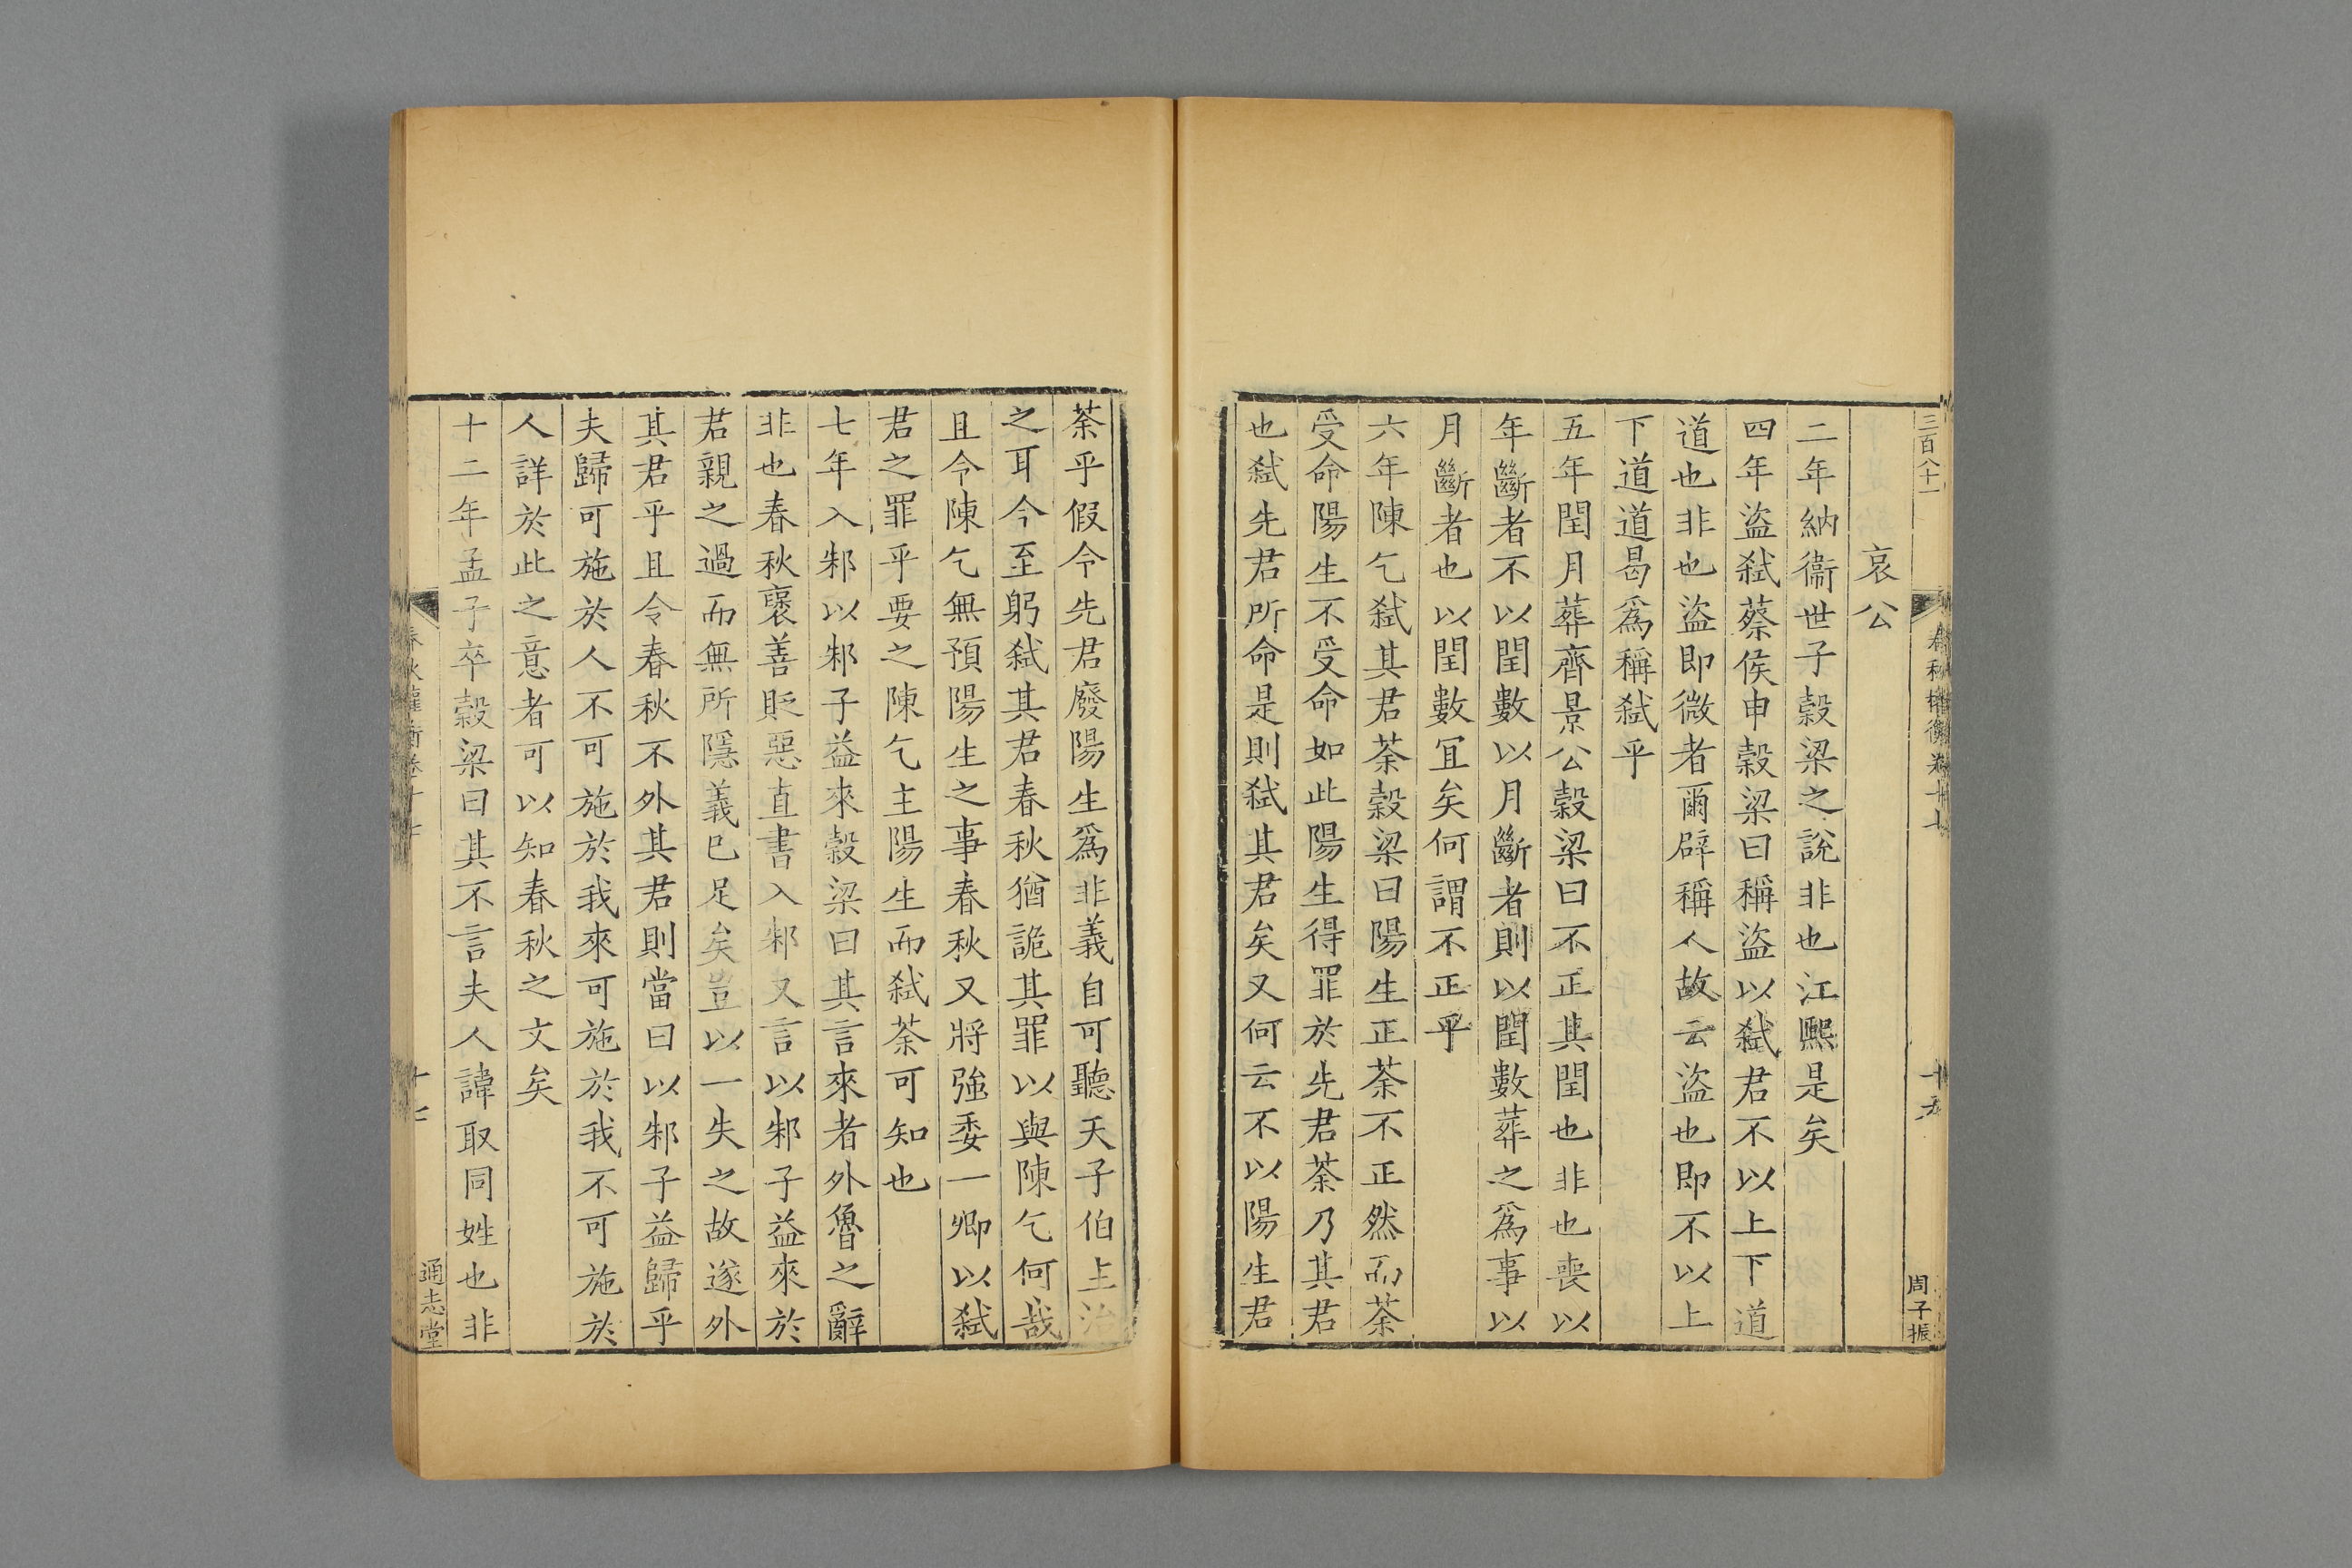 三百八十一
春秋權衡卷十七
十五
周子振
哀公
二年納衞世子穀梁之說非也江熙是矣
四年盜弑蔡侯申穀梁曰稱盜以弑君不以上下道
道也非也盜即微者爾辟稱人故云盜也即不以上
下道道曷爲稱弑乎
五年閏月葬齊景公穀梁曰不正其閏也非也喪以
年斷者不以閏數以月斷者則以閏數葬之爲事以
月斷者也以閏數冝矣何謂不正乎
六年陳乞弑其君荼穀梁曰陽生正荼不正然而荼
受命陽生不受命如此陽生得罪於先君荼乃其君
也弑先君所命是則弑其君矣又何云不以陽生君
荼乎假令先君廢陽生爲非義自可聽天子伯主治
之耳今至躬弑其君春秋猶詭其罪以與陳乞何哉
且令陳乞無預陽生之事春秋又將強委一卿以弑
君之罪乎要之陳乞主陽生而弑荼可知也
七年入邾以邾子益來穀梁曰其言來者外魯之辭
非也春秋襃善貶惡直書入邾又言以邾子益來於
君親之過而無所隱義已足矣豈以一失之故遂外
其君乎且令春秋不外其君則當曰以邾子益歸乎
夫歸可施於人不可施於我來可施於我不可施於
人詳於此之意者可以知春秋之文矣
十二年孟子卒穀梁曰其不言夫人諱取同姓也非
春秋權衡卷十七
通志堂